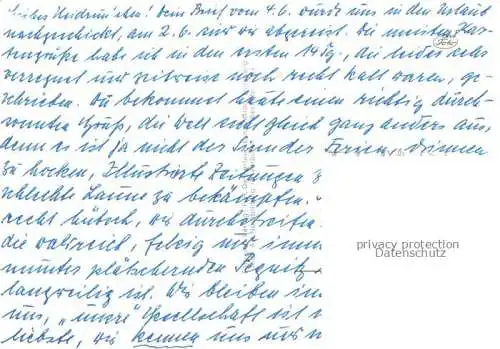 Liebes Heidrunchen! Dein Brief vom 4.6. wurde uns in den Urlaub
nachgeschickt, am 2.6. sind wir abgereist. Die meisten Kar-
tengrüße habe ich in den ersten 14 Tg., die leider sehr
verregnet und zeitweise noch recht kalt waren, ge-
schrieben. Du bekommst heute einen richtig durch-
sonnten Gruß, die Welt sieht gleich ganz anders aus,
denn es ist ja nicht der Sinn der Ferien, drinnen
zu hocken, Illustrierte Zeitungen
schlechte Laune zu bekämpfen.
recht hübsch, wir durchstreifen
die waldreich, felsig und
munter plätschernden Pegnitz
langweilig ist. Wir bleiben
uns, "unsere" Gesellschaft ist
liebste, wir kennen uns und
privacy protection
Datenschutz